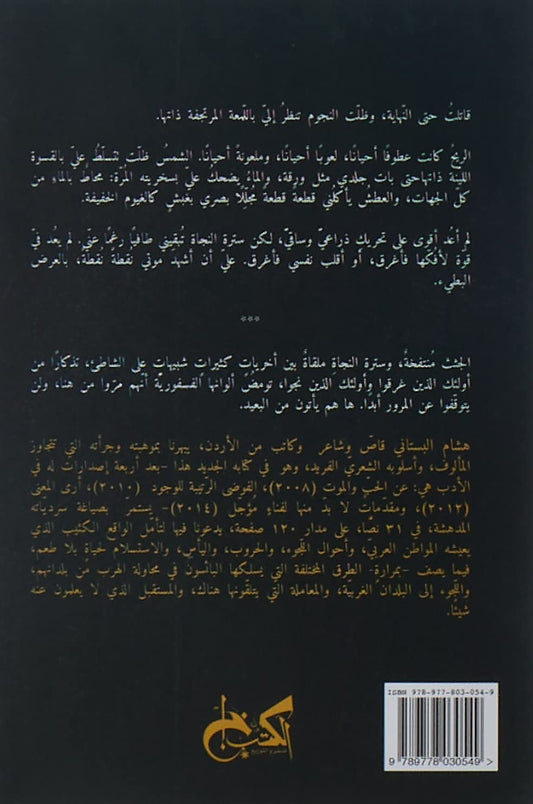 قاتلتُ حتى النّهاية، وظلّت النجوم تنظرُ إليّ باللّمعة المرتجفة ذاتها.
الريحُ كانت عطوفًا أحيانًا، لعوبًا أحيانًا، وملعونةً أحيانًا. الشمسُ ظلّت تتسلّطُ عليّ بالقسوة
الليّنة ذاتها حتى بات جلدي مثل ورقة، والماءُ يضحكُ عليّ بسخريته المرّة: محاطٌ بالماءِ من
كلّ الجهات، والعطش يأكلني قطعةً قطعةً مُجلّلًا بصري بغبشٍ كالغيوم الخفيفة.
لم أعد أقوى على تحريك ذراعيّ وساقيّ، لكن سترة النجاة تُبقيني طافيًا رغمًا عنّي. لم يعد فيّ
قوة لأفكّها فأغرق، أو أقلب نفسي فأغرق. عليّ أن أشهدَ موتي نقطةً نقطةً، بالعرض
البطيء.
***
الجثث مُنتفخةٌ، وسترة النجاة ملقاةٌ بين أخريات كثيرات شبيهات على الشاطئ، تذكارًا من
أولئك الذين غرقوا وأولئك الذين نجوا، تومضُ ألوانها الفسفوريّة أنّهم مرّوا من هنا، ولن
يتوقّفوا عن المرور أبدًا. ها هم يأتون من البعيد.
هشام البستاني قاصّ وشاعر وكاتب من الأردن، يبهرنا بموهبته وجرأته التي تتجاوز
المألوف، وأسلوبه الشعري الفريد، وهو في كتابه الجديد هذا -بعد أربعة إصدارات له في
الأدب هي: عن الحبّ والموت (٢٠٠٨)، الفوضى الرّتيبة للوجود (٢٠١٠)، أرى المعنى
(٢٠١٢)، ومقدّمات لا بد منها لفناءٍ مُؤجل (٢٠١٤)- يستمرّ بصياغة سردياته
المدهشة، في ٣١ نصًّا، على مدار ١٢٠ صفحة، يدعونا فيها لتأمّل الواقع الكئيب الذي
يعيشه المواطن العربي، وأحوال اللّجوء، والحروب، واليأس، والاستسلام لحياةٍ بلا طعم،
فيما يصف -بمرارة- الطرق المختلفة التي يسلكها البائسون في محاولة الهرب من بلدانهم،
واللّجوء إلى البلدان الغربيّة، والمعاملة التي يتلقّونها هناك، والمستقبل الذي لا يعلمون عنه
شيئًا.
ISBN 978-977-803-054-9
9 789778 030549 >
الكتب خان
للنشر والتوزيع